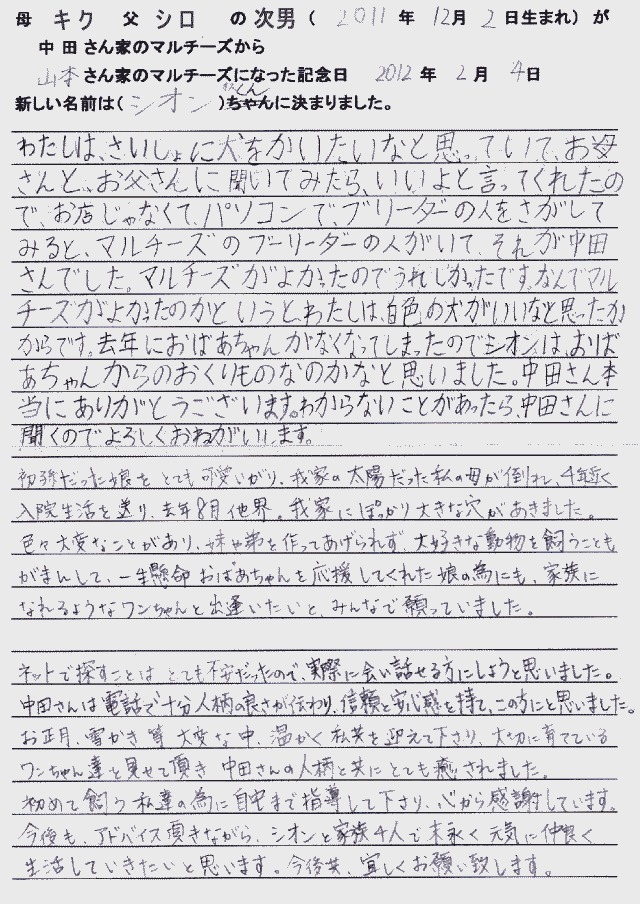 母 キク 父 シロ の 次男 ( 2011 年 12月 2 日生まれ ) が
中 田 さん家のマルチーズから
山本 さん家のマルチーズになった記念日 2012 年 2 月 4 日
新しい名前は( シオン )くんちゃんに決まりました。
わたしは、さいしょに犬をかいたいなと思っていて、お母
さんと、お父さんに聞いてみたら、いいよと言ってくれたの
で、お店じゃなくて、パソコンで、ブリーダーの人をさがして
みると、マルチーズのブーリーダーの人がいて、それが中田
さんでした。マルチーズがよかったのでうれしかったです。なんでマル
チーズがよかったのかというと、わたしは、白色の犬がいいなと思ったか
からです。去年におばあちゃんがなくなってしまったのでシオンは、おば
あちゃんからのおくりものなのかなと思いました。中田さん本
当にありがとうございます。わからないことがあったら、中田さんに
聞くのでよろしくおねがいします。
初孫だった娘をとても可愛いがり、我家の太陽だった私の母が倒れ、4年近く
入院生活を送り、去年8月他界。我家にぽっかり大きな穴があきました。
色々大変なことがあり、妹や弟を作ってあげられず、大好きな動物を飼うことも
がまんして、一生懸命おばあちゃんを応援してくれた娘の為にも、家族に
なれるようなワンちゃんと出逢いたいと、みんなで願っていました。
ネットで探すことはとても不安だったので、実際に会い話せる方にしようと思いました。
中田さんは電話で十分人柄の良さが伝わり、信頼と安心感を持て、この方にと思いました。
お正月、雪かき等 大変な中、温かく私共を迎えて下さり、大切に育てている
ワンちゃん達を見せて頂き 中田さんの人柄と共にとても癒されました。
初めて飼う私達の為に自宅まで指導して下さり、心から感謝しています。
今後も、アドバイス頂きながら、シオンと家族4人で末永く元気に仲良く
生活していきたいと思います。今後共、宜しくお願い致します。